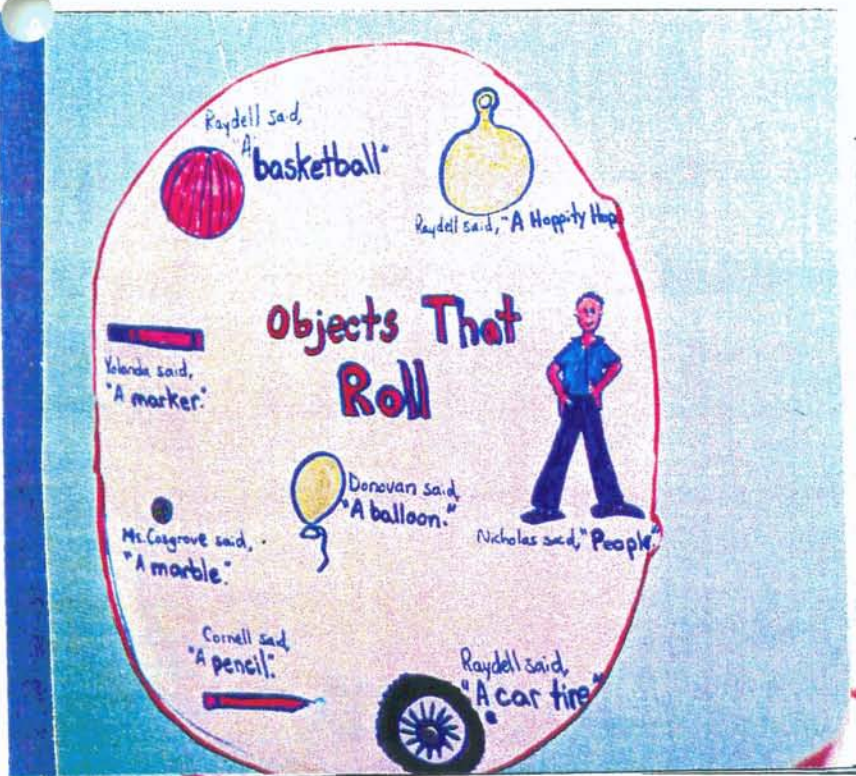 Raydell said,
"A
basketball"
Raydell said, "A Hoppity Hop
Objects That
Roll
Yolanda said,
"A marker."
Donovan said,
"A balloon."
Ms. Cosgrove said,
"A marble."
Nicholas said, "People."
Cornell said,
"A pencil."
Raydell said,
"A car tire"